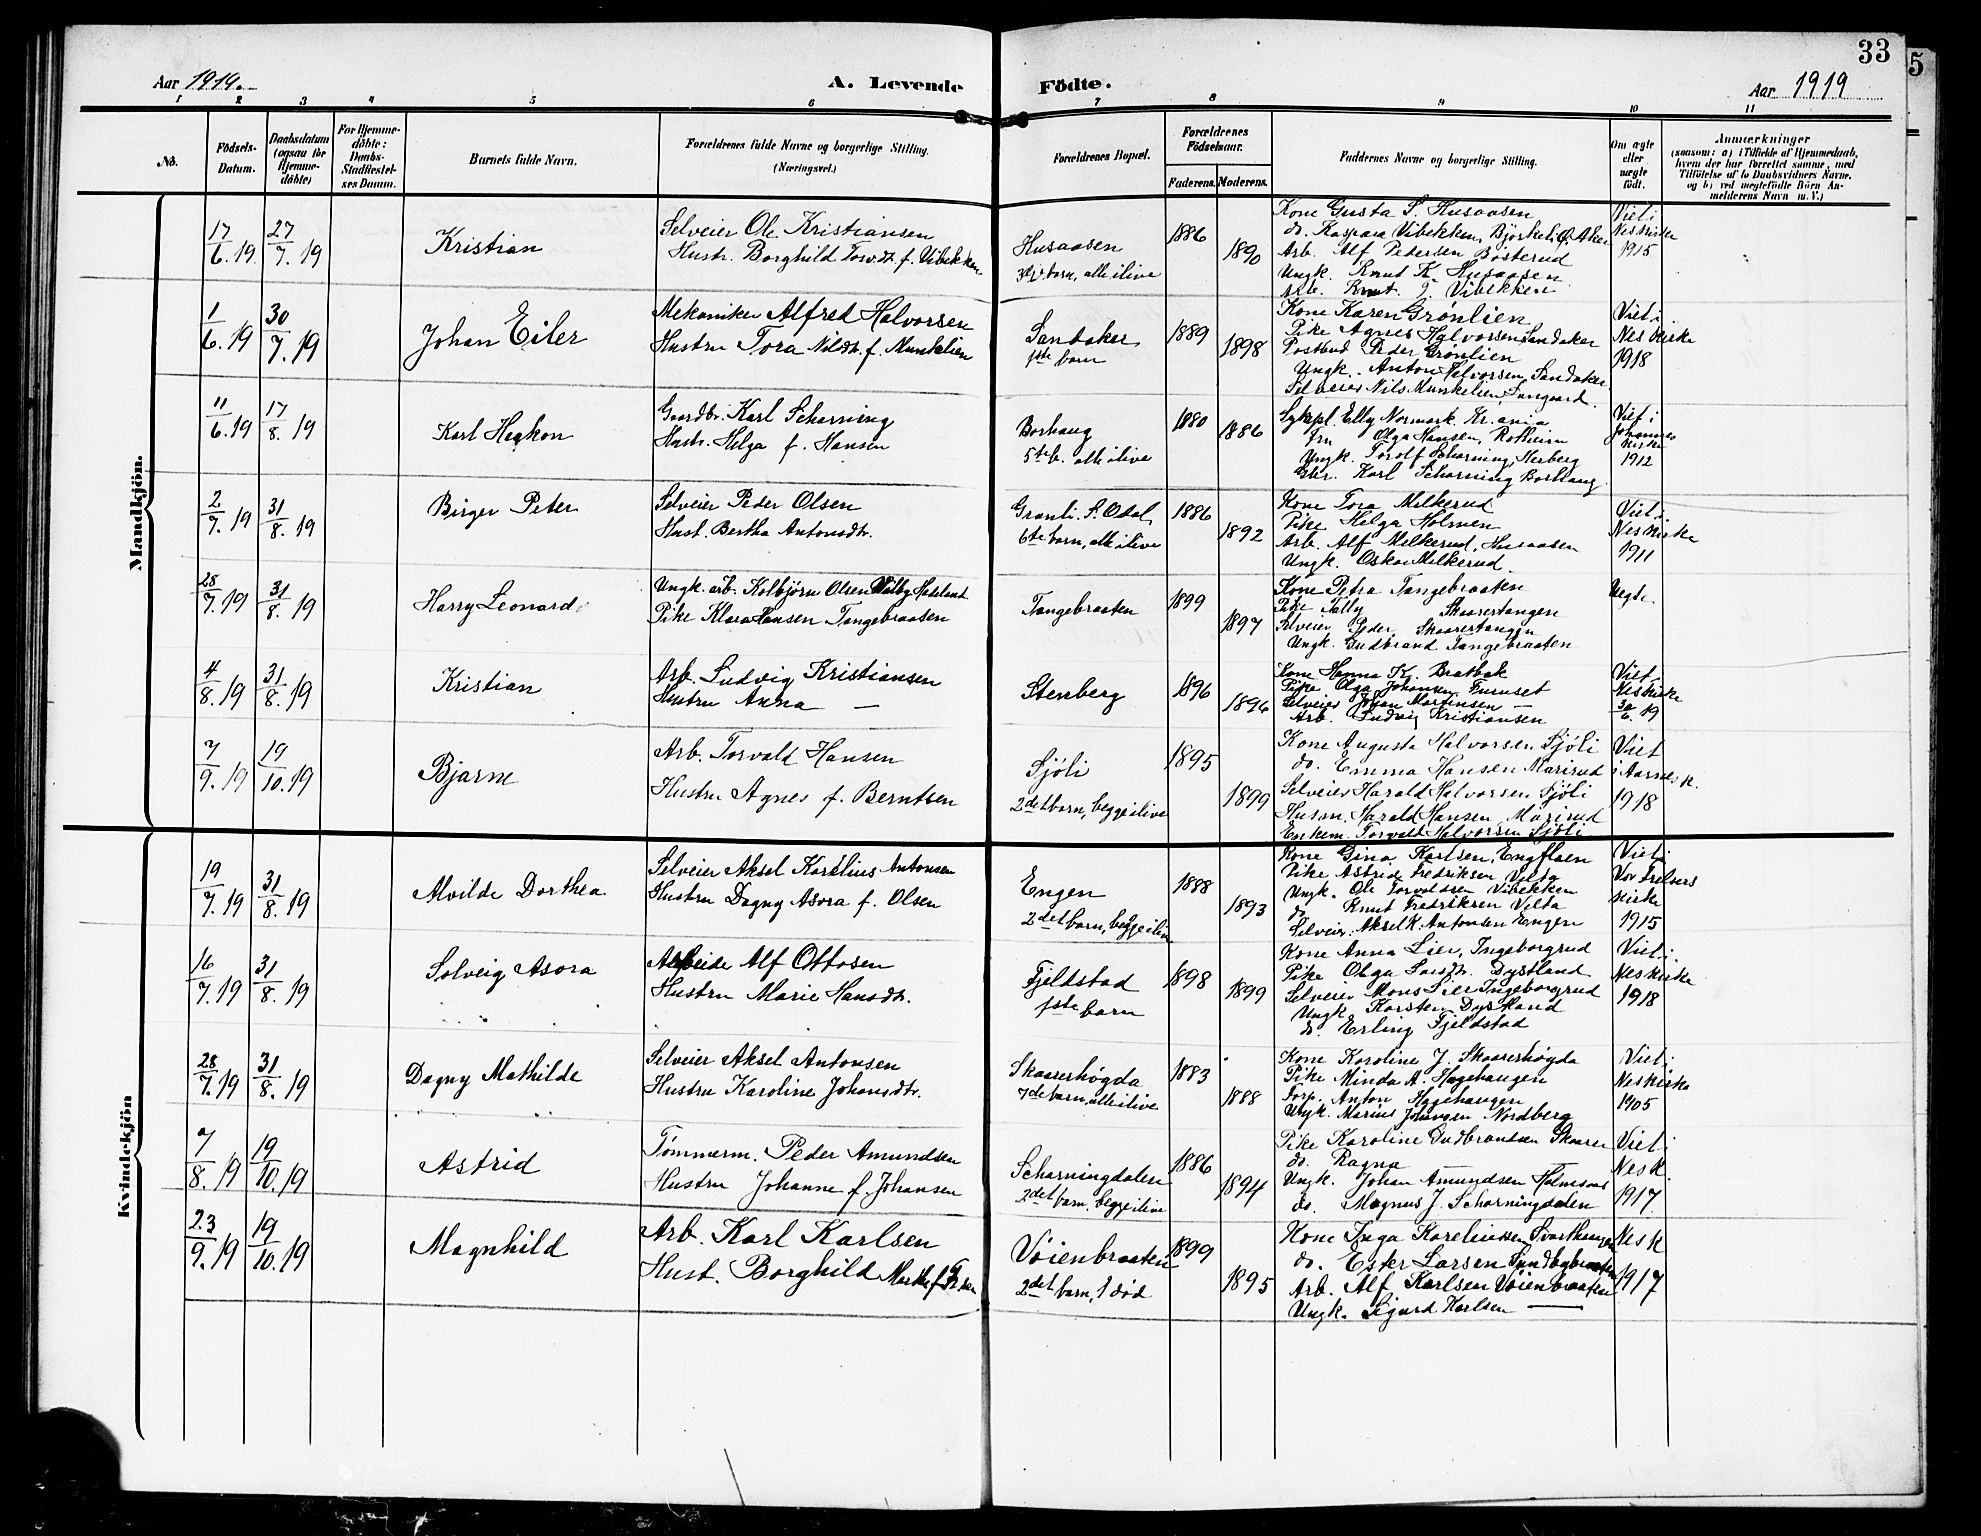 33
5
Aar 1919.
A. Levende
Födte.
Aar 1919
1 2 3 4 5 6 7 8 9 10 11
No.
Födsels-Datum.
Daabsdatum (ogsaa for Hjemme-döbte)
For Hjemme-döbte: Daabs-Stadfæstel-ses Datum.
Barnets fulde Navn.
Forældrenes fulde Navne og borgerlige Stilling.
(Næringsvei.)
Forældrenes Bopæl.
Forældrenes Födselsaar.
Faderens.
Moderens.
Faddernes Navne og borgerlige Stilling.
Om ægte eller uægte födt.
Anmærkninger
(saasom: a) i Tilfælde af Hjemmedaab,
hvem der har forrettet samme, med
Tilföielse af to Daabsvidners Navne,
og b) ved uægtefödte Börn An-
melderens Navn m. V.)
Mandkjön.
17/6.19 27/7.19
Kristian
Selveier Ole Kristiansen
Hustr. Borghild Torvdtr. f. Vibekken
Husaasen
3die barn, alle ilive
1886
1890
Kone Gusta S. Husaasen
do. Kaspara Vibekken, Björkeli, Ø. Aker
Arb. Alf Pedersen Bösterud
Ungk. Knut K. Husaasen
Arb. Knut T. Vibekken
Viet i
Nes kirke
1915
1/6.19 30/7.19
Johan Eiler
Mekaniker Alfred Halvorsen
Hustru Tora Nilsdtr. f. Munkelien
Sandaker
1ste barn
1889
1898
Kone Karen Grønlien
Pike Agnes Halvorsen, Sandaker
Postbud Peder Grønlien
Ungk. Anton Halvorsen, Sandaker
Selveier Nils Munkelien, Fungaard.
Viet i
Nes kirke
1918
11/6.19 17/8.19
Karl Haakon
Gaardbr. Karl Scharning
Hustr. Helga f. Hansen
Borhaug
5te b. alle ilive
1880
1886
Sykepl. Elly Normark Kr.ania
Fru Olga Hansen, Rotheim
Ungk. Torolf Scharning, Herberg
Gbr. Karl Scharning Borhaug
Viet i
Johannes
kirke
1912
2/7.19 31/8.19
Birger Peter
Selveier Peder Olsen
Hust. Bertha Antonsdtr.
Grønli. S. Odal.
6te barn, alle ilive
1886
1892
Kone Tora Milkerud
Pike Helga Holmen
Arb. Alf Milkerud, Husaasen
Ungk. Oskar Milkerud
Viet i
Nes kirke
1911
28/7.19 31/8.19
Harry Leonard
Ungk. arb. Kolbjörn Olsen Hadeland
Pike Klara Hansen Tangebraaten
Tangebraaten
1899
1897
Kone Petra Tangebraaten
Pike Tally Skaarertangen
Selveier Peder Skaarertangen
Ungk. Gudbrand Tangebraaten
Uegte.
4/8.19 31/8.19
Kristian
Arb. Ludvig Kristiansen
Hustru Anna —
Stenberg
1896
1896
Kone Hanna Kr. Bratbak
Pike Olga Johansen Furuset
Selveier Johan Martinsen —
Arb. Ludvig Kristiansen
Viet
Nes kirke
30/6.19
7/9.19 19/10.19
Bjarne
Arb. Torvald Hansen
Hustru Agnes f. Berntsen
Sjöli
2det barn, begge ilive
1895
1899
Kone Augusta Halvorsen Sjöli
do. Emma Hansen Marirud
Selveier Harald Halvorsen Sjöli
Husm. Harald Hansen, Marirud
Enkem. Torvald Halvorsen Sjöli
Viet
i Aarnes k.
1918
Kvindekjön
19/7.19 31/8.19
Alvilde Dorthea
Selveier Aksel Karelius Antonsen
Hustru Dagny Asora f. Olsen
Engen
2det barn, begge ilive
1888
1893
Kone Gina Karlsen, Engflaen
Pike Astrid Fredriksen Velta
Ungk. Ole Torvaldsen Vibekken
do. Knut Fredriksen Velta
Selveier Aksel K. Antonsen Engen
Viet i
Vor Frelsers
kirke
1915
16/7.19 31/8.19
Solveig Asora
Arbeide Alf Ottosen
Hustru Marie Hansdtr.
Fjeldstad
1ste barn
1898
1899
Kone Anna Lier, Ingeborgrud
Pike Olga Larsdtr. Dystland
Selveier Mons Lier Ingeborgrud
Ungk. Karsten Dystland
do. Erling Fjeldstad
Viet i
Nes kirke
1918
28/7.19 31/8.19
Dagny Mathilde
Selveier Aksel Antonsen
Hustru Karoline Johansdtr.
Skaarerhøgda
7de barn, alle ilive
1883
1888
Kone Karoline J. Skaarerhøgda
Pike Minda A. Hagehaugen
Forp. Anton Hagehaugen
Ungk. Marius Johansen Nordberg
Viet i
Nes kirke
1905
7/8.19 19/10.19
Astrid
Tømmerm. Peder Amundsen
Hustru Johanne f. Johansen
Scharningdalen
2det barn, begge ilive
1886
1894
Pike Karoline Gudbrandsen Skaarer
do. Ragna —
Ungk. Johan Amundsen Holmsaas
do. Magnus J. Scharningdalen
Viet i
Nes k.
1917.
23/9.19 19/10.19
Magnhild
Arb. Karl Karlsen
Hust. Borghild Marthe f.
Vøienbraaten
2det barn, 1 död
1899
1895
Kone Inga Kareliussen Svarthaugen
do. Ester Larsen Sundbybraaten
Arb. Alf Karlsen Vøienbraaten
Ungk. Sigurd Karlsen —
Nes k
1917